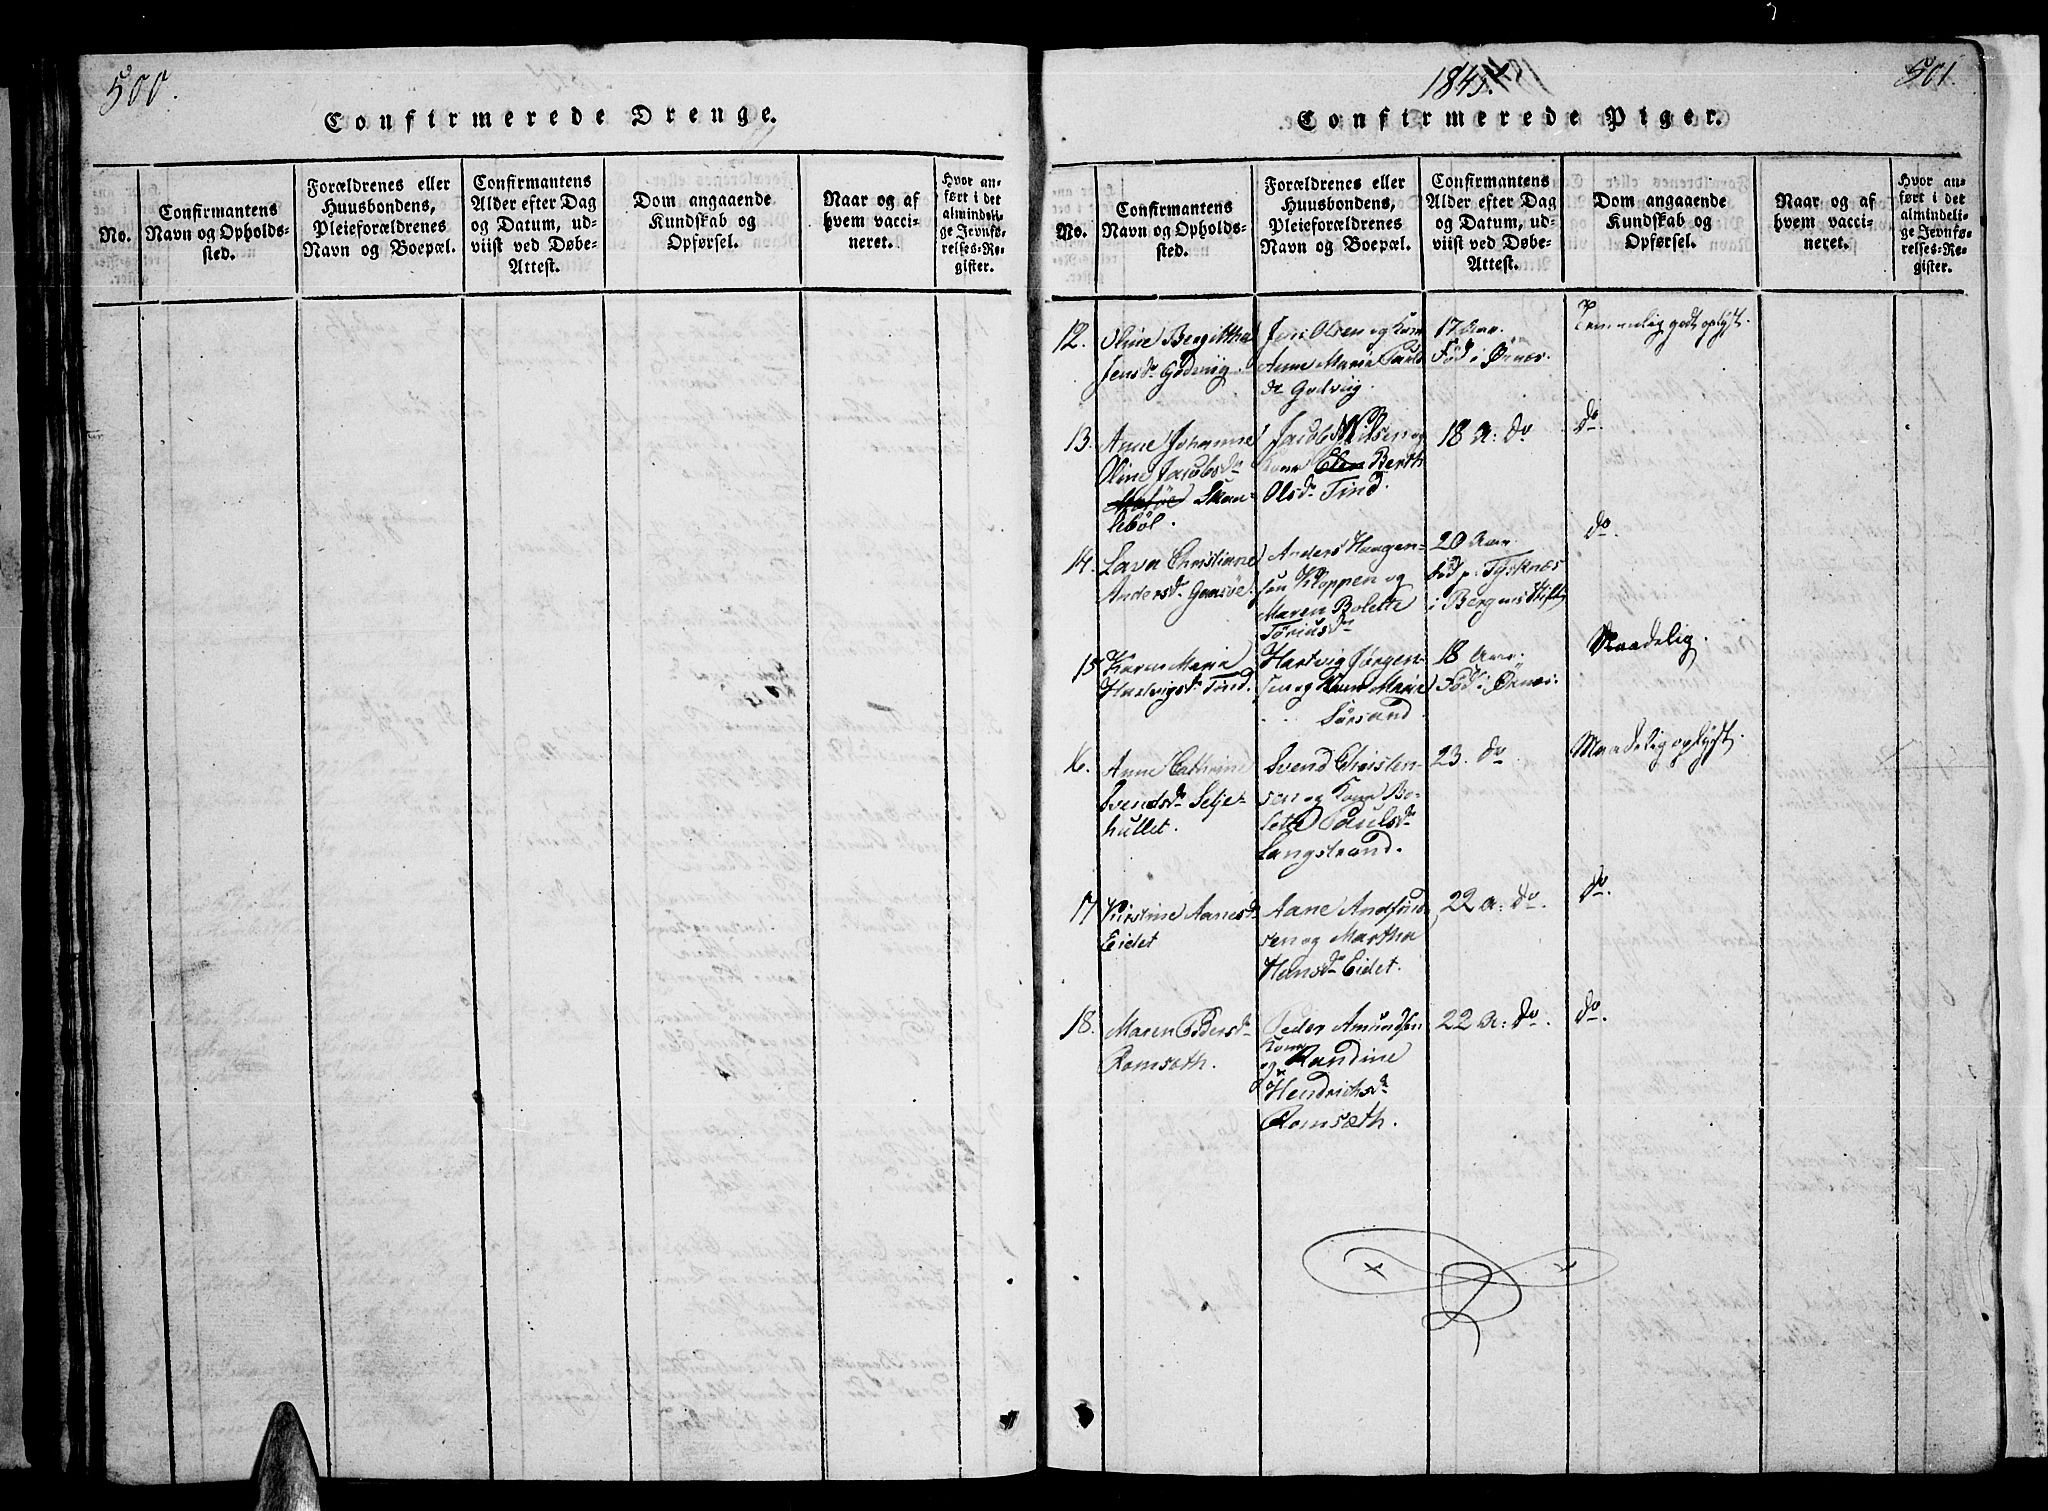 500.
Confirmerede Drenge.
No.
Confirmantens
Navn og Opholds-
sted.
Forældrenes eller
Huusbondens,
Pleieforældrenes
Navn og Boepæl.
Confirmantens
Alder efter Dag
og Datum, ud-
viist ved Døbe-
Attest.
Dom angaaende
Kundskab og
Opførsel.
Naar og af
hvem vacci-
neret.
Hvor an-
ført i det
almindeli-
ge Jevnfø-
relses-Re-
gister.
501.
Confirmerede Piger.
No.
Confirmantens
Navn og Opholds-
sted.
Forældrenes eller
Huusbondens,
Pleieforældrenes
Navn og Boepæl.
Confirmantens
Alder efter Dag
og Datum, ud-
viist ved Døbe-
Attest.
Dom angaaende
Kundskab og
Opførsel.
Naar og af
hvem vacci-
neret.
Hvor an-
ført i det
almindeli-
ge Jevnfø-
relses-Re-
gister.
12.
Oline Bergittha
Jensdr Godviig.
Jens Olsen og Kone
Anne Marie Pauls
dr Godviig.
17 Aar.
Fød i Ørnes.
Temmelig godt oplyst.
13.
Anne Johanne
Oline Jacobsdr
Skau-
lebøl.
Jacob Nilsen og
Kone Elen Berth
Olsdr Tind.
18 A: do
do.
14.
Lava Christianne
Andersdr Gaasøe.
Anders Haagen-
sen Kloppen og
Maren Bolette
Tøriusdr
20 Aar.
fød p. Tysknæs
i Bergens Stift
do.
15.
Karen Maria
Hartvigsdr Tind.
Hartvig Jørgen-
sen og Kone Marie
Sørsand.
18 Aar.
Fød i Ørnæs.
Maadelig.
16.
Anne Cathrine
Svendsdr Selje-
hullet.
Svend Christen-
sen og Kone Bo-
lette Paulsdr
Langstrand.
23. do.
Maadelig oplyst.
17
Kirstine Aanesdr
Eidet
Aane Andfind-
sen og Martha
Hansdr Eidet.
22 A: do.
do.
18.
Maren Pedersdr
Romsæth.
Peder Amundsen
Kone
og Randine
Hendrichsdr
Romsæth.
22 A: do.
do.